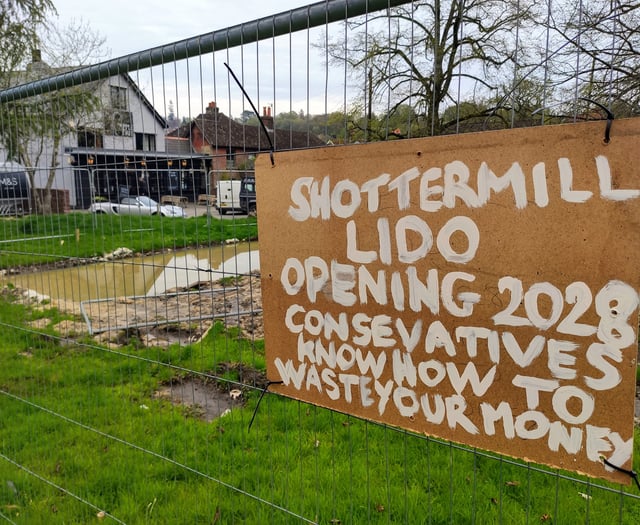 SHOTTERMILL
LIDO
OPENING 2028
CONSEVATIVES
KNOW HOW TO
WASTE YOUR MONEY